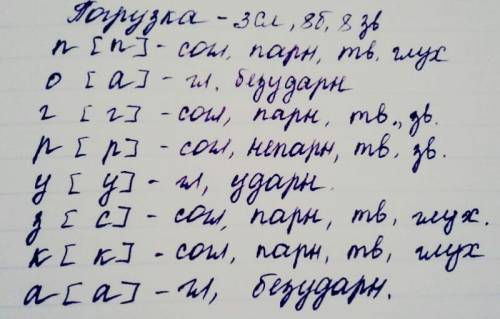 Погрузка - 3 сл, 8б, 8 зв
п [п] - согл, парн, тв, глух
о [а] - гл, безударн
г [г] - согл, парн, тв., зв.
р [р] - согл, непарн, тв. зв.
у [у] - гл, ударн.
з [с] - согл, парн, тв, глух.
к [к] - согл, парн, тв, глух
а [а] - гл, безударн.